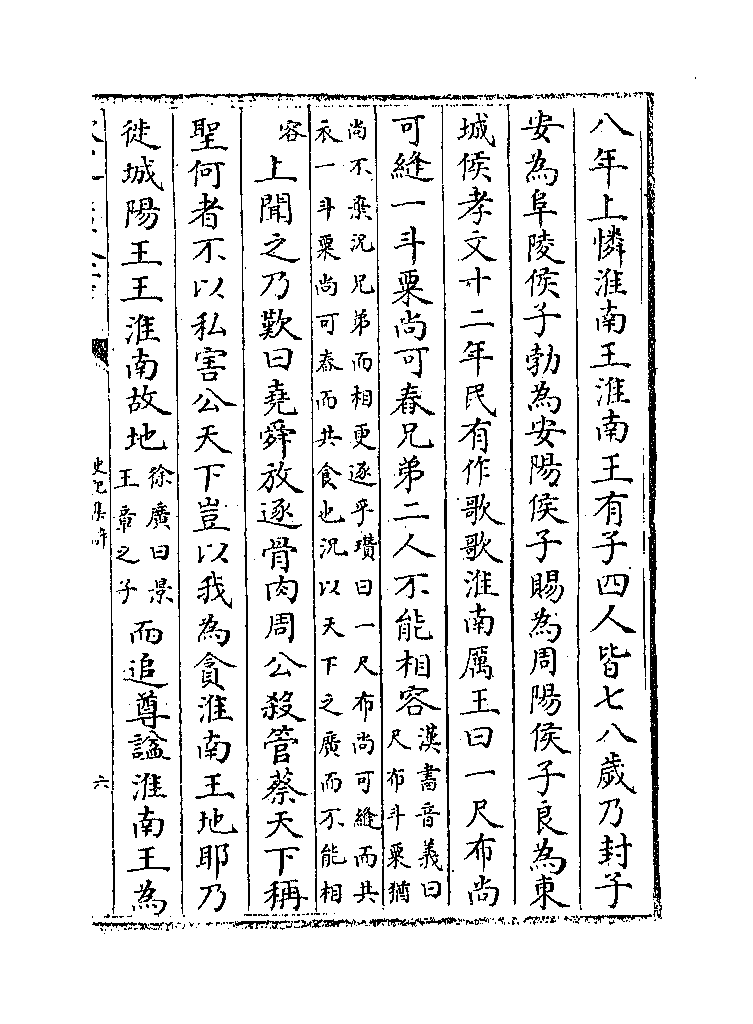 八年上憐淮南王淮南王有子四人皆七八歲乃封子
安為阜陵侯子勃為安陽侯子賜為周陽侯子良為東
城侯孝文十二年民有作歌歌淮南厲王曰一尺布尚
可縫一斗粟尚可舂兄弟二人不能相容漢書音義曰
尺布斗粟猶
尚不棄況兄弟而相更逐乎瓚曰一尺布尚可縫而共
衣一斗粟尚可舂而共食也況以天下之廣而不能相
容
上聞之乃歎曰堯舜放逐骨肉周公殺管蔡天下稱
聖何者不以私害公天下豈以我為貪淮南王地耶乃
徙城陽王王淮南故地徐廣曰景
王章之子而追尊諡淮南王為
史記集解
六